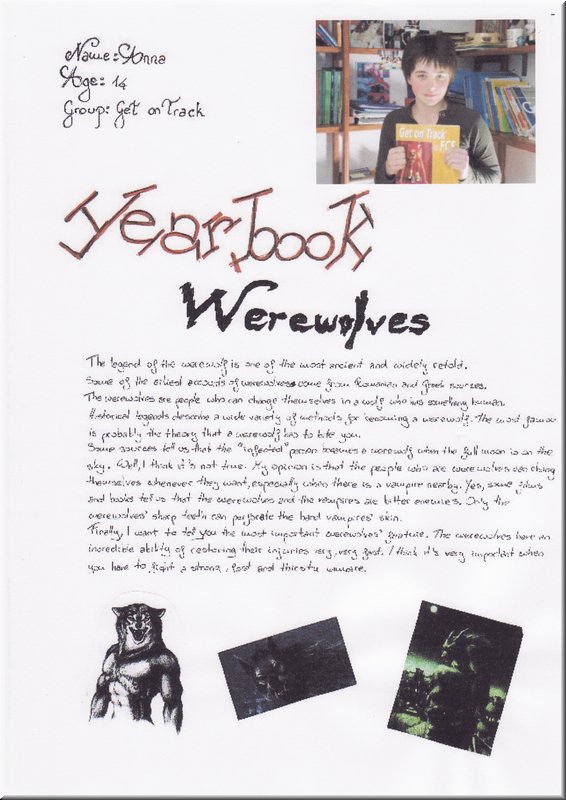 Name: Anna
Age: 14
Group: Get on Track
Get on Track
to FCE
Yearbook
Werewolves
The legend of the werewolf is one of the most ancient and widely retold.
Some of the earliest accounts of werewolves come from Romanian and Greek sources.
The werewolves are people who can change themselves in a wolf who has something human.
Historical legends describe a wide variety of methods for becoming a werewolf. The most famous
is probably the theory that a werewolf has to bite you.
Some sources tell us that the "infected" person becomes a werewolf when the full moon is on the
sky. Well, I think it's not true. My opinion is that the people who are werewolves can change
themselves whenever they want, especially when there is a vampire nearby. Yes, some films
and books tell us that the werewolves and the vampires are bitter enemies. Only the
werewolves' sharp teeth can perforate the hard vampires' skin.
Finally, I want to tell you the most important werewolves' feature. The werewolves have an
incredible ability of restoring their injuries very, very fast. I think it's very important when
you have to fight a strong, fast and thirsty vampire.